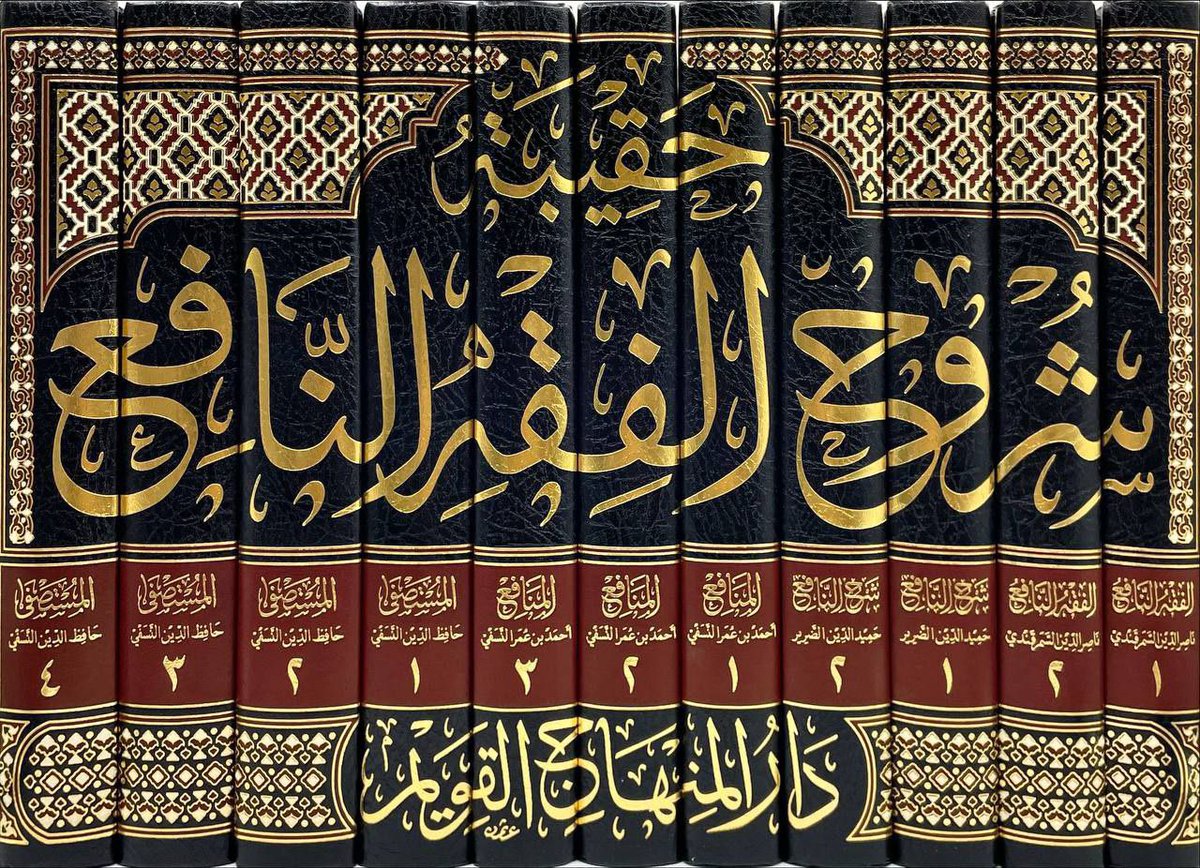 حَقِيبَةُ
شُرُوحِ الفِقْهِ النَّافِعِ
الفقه النافع
ناصر الدين السمرقندي
١
الفقه النافع
ناصر الدين السمرقندي
٢
شرح النافع
حميد الدين الضرير
١
شرح النافع
حميد الدين الضرير
٢
المنافع
أحمد بن عمر النسفي
١
المنافع
أحمد بن عمر النسفي
٢
المنافع
أحمد بن عمر النسفي
٣
المستصفى
حافظ الدين النسفي
١
المستصفى
حافظ الدين النسفي
٢
المستصفى
حافظ الدين النسفي
٣
المستصفى
حافظ الدين النسفي
٤
دَارُ المِنْهَاجِ القَوِيمِ